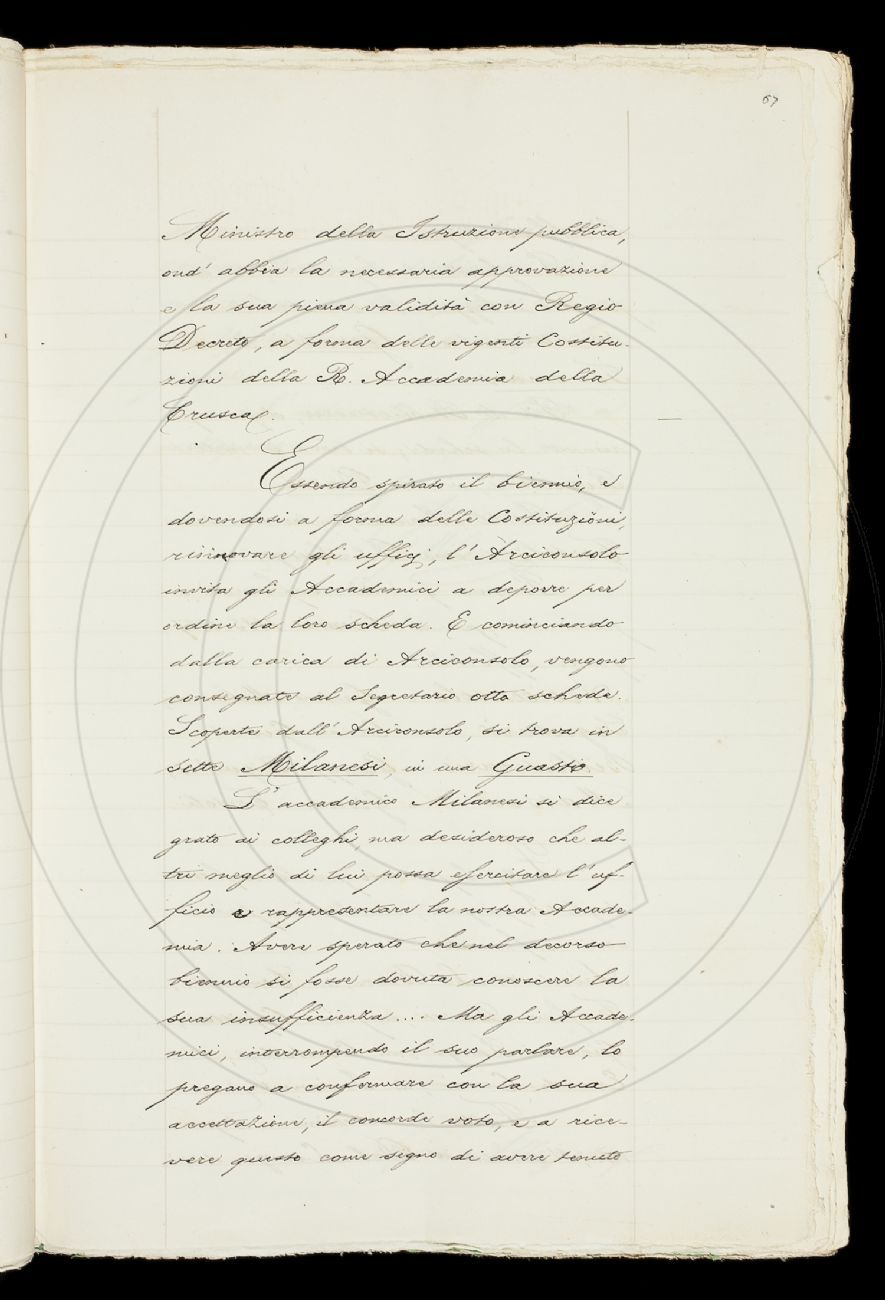 67
Ministro della Istruzione pubblica,
ond' abbia la necessaria approvazione
e la sua piena validità con Regio
Decreto, a forma delle vigenti Costitu-
zioni della R. Accademia della
Crusca.
Essendo spirato il biennio, e
dovendosi a forma delle Costituzioni,
rinnovare gli ufficj, l'Arciconsolo
invita gli Accademici a deporre per
ordine la loro scheda. E cominciando
dalla carica di Arciconsolo, vengono
consegnate al Segretario otto schede.
Scoperte dall'Arciconsolo, si trova in
sette Milanesi, in una Guasto.
L'accademico Milanesi si dice
grato ai colleghi, ma desideroso che al-
tri meglio di lui possa esercitare l'uf-
ficio e rappresentare la nostra Accade-
mia. Avere sperato che nel decorso
biennio si fosse dovuta conoscere la
sua insufficienza.... Ma gli Accade-
mici, interrompendo il suo parlare, lo
pregano a confermare con la sua
accettazione, il concorde voto, e a rice-
vere questo come segno di avere tenuto